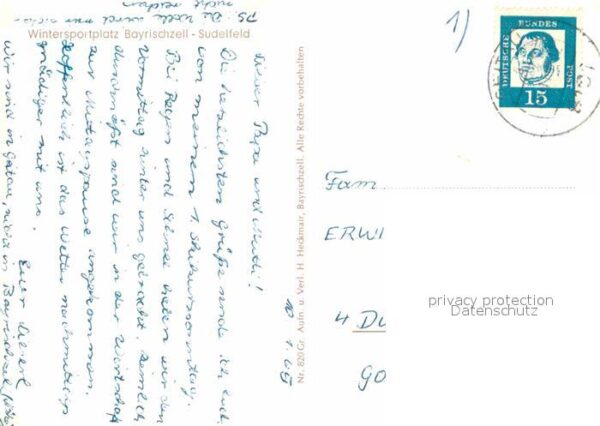 PS: Die Wolle wird nur
nicht reichen
Wintersportplatz Bayrischzell - Sudelfeld
Lieber Papa und Mutti!
Die herzlichsten Grüße sende ich euch
von meinem 1. Skikurssonntag.
Bei Regen und Schnee haben wir den
Vormittag hinter uns gebracht. Ziemlich
durchnäßt sind wir in der Wirtschaft
zur Mittagspause angekommen.
Hoffentlich ist das Wetter nachmittags
gnädiger mit uns.
Euer
wir sind in Geitau, nicht in Bayrischzell
Nr. 820 Gr. Aufn. u. Verl. H. Heckmair, Bayrischzell. Alle Rechte vorbehalten
10 1.65
1)
DEUTSCHE BUNDES POST
15
Fam
ERWI
4 Du
Go
privacy protection
Datenschutz